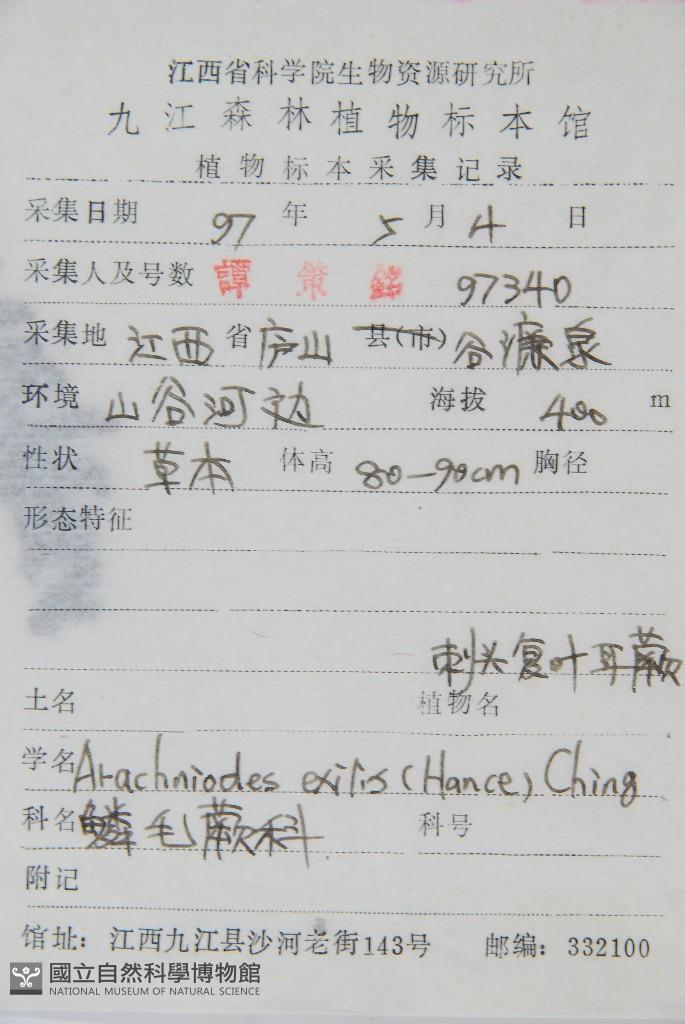 江西省科学院生物资源研究所
九江森林植物标本馆
植物标本采集记录
采集日期 97 年 5 月 4 日
采集人及号数 譚 策 銘 97340
采集地 江西 省 庐山 县(市) 谷濂泉
环境 山谷河边 海拔 400 m
性状 草本 体高 80—90cm 胸径
形态特征
刺头复叶耳蕨
土名 植物名
学名 Arachniodes exilis (Hance) Ching
科名 鳞毛蕨科 科号
附记
馆址：江西九江县沙河老街143号 邮编：332100
國立自然科學博物館
NATIONAL MUSEUM OF NATURAL SCIENCE